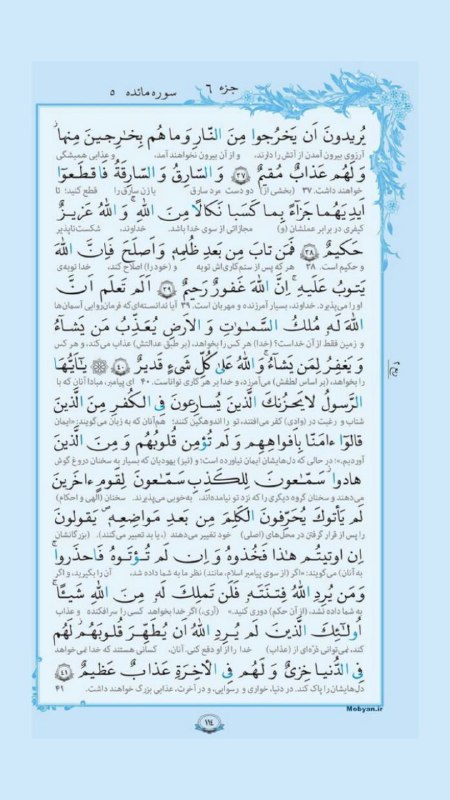 جزء ۶
سوره مائده ۵
یُریدونَ اَن یَخرُجوا مِنَ النّارِ وَ ما هُم بِخارِجینَ مِنها
آرزوی بیرون آمدن از آتش را دارند، و از آن بیرون نخواهند آمد، و عذابی همیشگی
وَ لَهُم عَذابٌ مُقیمٌ ﴿۳۷﴾ وَ السّارِقُ وَ السّارِقَةُ فَاقطَعوا
خواهند داشت. ۳۷ (بخشی از) دو دست مرد سارق و یا زن سارق را قطع کنید؛ تا
اَیدِیَهُما جَزاءً بِما کَسَبا نَکالًا مِنَ اللّٰهِ وَ اللّٰهُ عَزیزٌ
کیفری در برابر عملشان (و) مجازاتی از سوی خدا باشد. خداوند، شکست‌ناپذیر
حَکیمٌ ﴿۳۸﴾ فَمَن تابَ مِن بَعدِ ظُلمِهٖ وَ اَصلَحَ فَاِنَّ اللّٰهَ
و حکیم است. ۳۸ هر که پس از ستم‌کاری‌اش توبه و (خود را) اصلاح کند، خدا توبه‌ی
یَتوبُ عَلَیهِ اِنَّ اللّٰهَ غَفورٌ رَحیمٌ ﴿۳۹﴾ اَلَم تَعلَم اَنَّ
او را می‌پذیرد. خداوند، بسیار آمرزنده و مهربان است. ۳۹ آیا ندانسته‌ای که فرمان‌روایی آسمان‌ها
اللّٰهَ لَهٗ مُلکُ السَّمٰوٰتِ وَ الاَرضِ یُعَذِّبُ مَن یَشاءُ
و زمین فقط از آن خداست؟ (خدا) هر کس را بخواهد، (بر طبق عدالتش) عذاب می‌کند، و هر کس
وَ یَغفِرُ لِمَن یَشاءُ وَ اللّٰهُ عَلیٰ کُلِّ شَیءٍ قَدیرٌ ﴿۴۰﴾ یٰاَیُّهَا
را بخواهد، (بر اساس لطفش) می‌آمرزد، و خدا بر هر کاری تواناست. ۴۰ ای پیامبر، مبادا آنان که با
الرَّسولُ لا یَحزُنکَ الَّذینَ یُسارِعونَ فِی الکُفرِ مِنَ الَّذینَ
شتاب و رغبت در (وادی) کفر می‌افتند، تو را اندوهگین کنند؛ هم‌آنان که به زبان می‌گویند: «ایمان
قالوا ءامَنّا بِاَفواهِهِم وَ لَم تُؤمِن قُلوبُهُم وَ مِنَ الَّذینَ
آوردیم.»؛ در حالی که دل‌هایشان ایمان نیاورده است؛ و (نیز) یهودیان که بسیار به سخنان دروغ گوش
هادوا سَمّاعونَ لِلکَذِبِ سَمّاعونَ لِقَومٍ ءاخَرینَ
می‌دهند و سخنان گروه دیگری را که نزد تو نیامده‌اند، به‌خوبی می‌پذیرند. سخنان (الهی و احکام)
لَم یَأتوکَ یُحَرِّفونَ الکَلِمَ مِن بَعدِ مَواضِعِهٖ یَقولونَ
را پس از قرار گرفتن در محل‌های (اصلی) خود تغییر می‌دهند (، یا بد تعبیر می‌کنند). (بزرگانشان
اِن اوتیتُم هٰذا فَخُذوهُ وَ اِن لَم تُؤتَوهُ فَاحذَروا
به آنان) می‌گویند: «اگر (از سوی پیامبر اسلام، مانند) نظر ما به شما داده شد، آن را بگیرید، و اگر
وَ مَن یُرِدِ اللّٰهُ فِتنَتَهٗ فَلَن تَملِکَ لَهٗ مِنَ اللّٰهِ شَیئًا
به شما داده نشد، (از آن حکم) دوری کنید.» (آری،) اگر خدا بخواهد کسی را سرافکنده و عذاب
اُولٰئِکَ الَّذینَ لَم یُرِدِ اللّٰهُ اَن یُطَهِّرَ قُلوبَهُم لَهُم
کند، نمی‌توانی ذره‌ای از (عذاب) خدا را از او دفع کنی. آنان، کسانی هستند که خدا نمی‌خواهد
فِی الدُّنیا خِزیٌ وَ لَهُم فِی الاٰخِرَةِ عَذابٌ عَظیمٌ ﴿۴۱﴾
دل‌هایشان را پاک کند. در دنیا، خواری و رسوایی، و در آخرت، عذابی بزرگ خواهند داشت. ۴۱
Mobyan.ir
۱۱٤